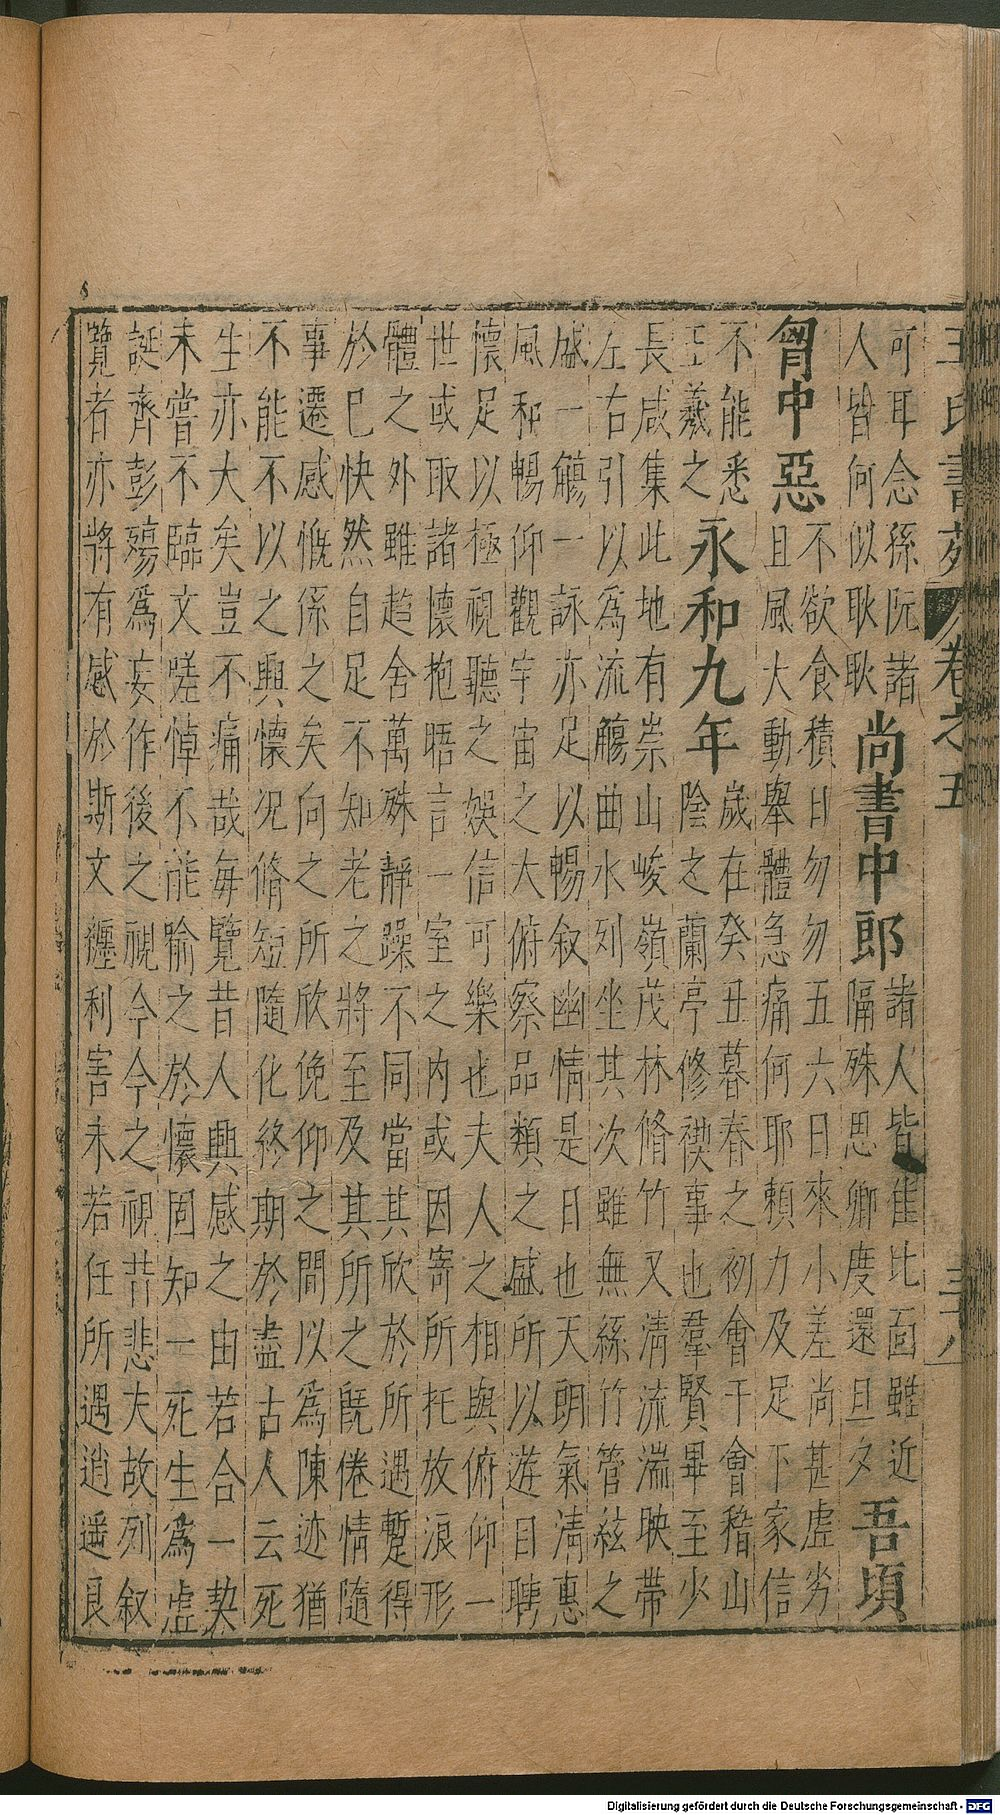 王氏書苑 卷之五 三十八
可耳念孫阮諸
人皆何似耿耿
尚書中郎
諸人皆佳比面雖近
隔殊思卿度還旦夕
吾頃
胷中惡
不欲食積日勿勿五六日來小差尚甚虛劣
且風大動舉體急痛何耶賴力及足下家信
不能悉
王羲之
永和九年
歲在癸丑暮春之初會于會稽山
陰之蘭亭修禊事也羣賢畢至少
長咸集此地有崇山峻嶺茂林脩竹又清流湍映帶
左右引以爲流觴曲水列坐其次雖無絲竹管絃之
盛一觴一詠亦足以暢叙幽情是日也天朗氣清惠
風和暢仰觀宇宙之大俯察品類之盛所以遊目騁
懷足以極視聽之娛信可樂也夫人之相與俯仰一
世或取諸懷抱晤言一室之内或因寄所托放浪形
體之外雖趋舍萬殊靜躁不同當其欣於所遇蹔得
於已快然自足不知老之將至及其所之旣倦情隨
事遷感慨係之矣向之所欣俛仰之間以爲陳迹猶
不能不以之興懷况脩短隨化終期於盡古人云死
生亦大矣豈不痛哉每覽昔人興感之由若合一契
未嘗不臨文嗟悼不能喻之於懷固知一死生爲虛
誕齊彭殤爲妄作後之視今今之視昔悲夫故列叙
覽者亦將有感於斯文纏利害未若任所遇逍遥良